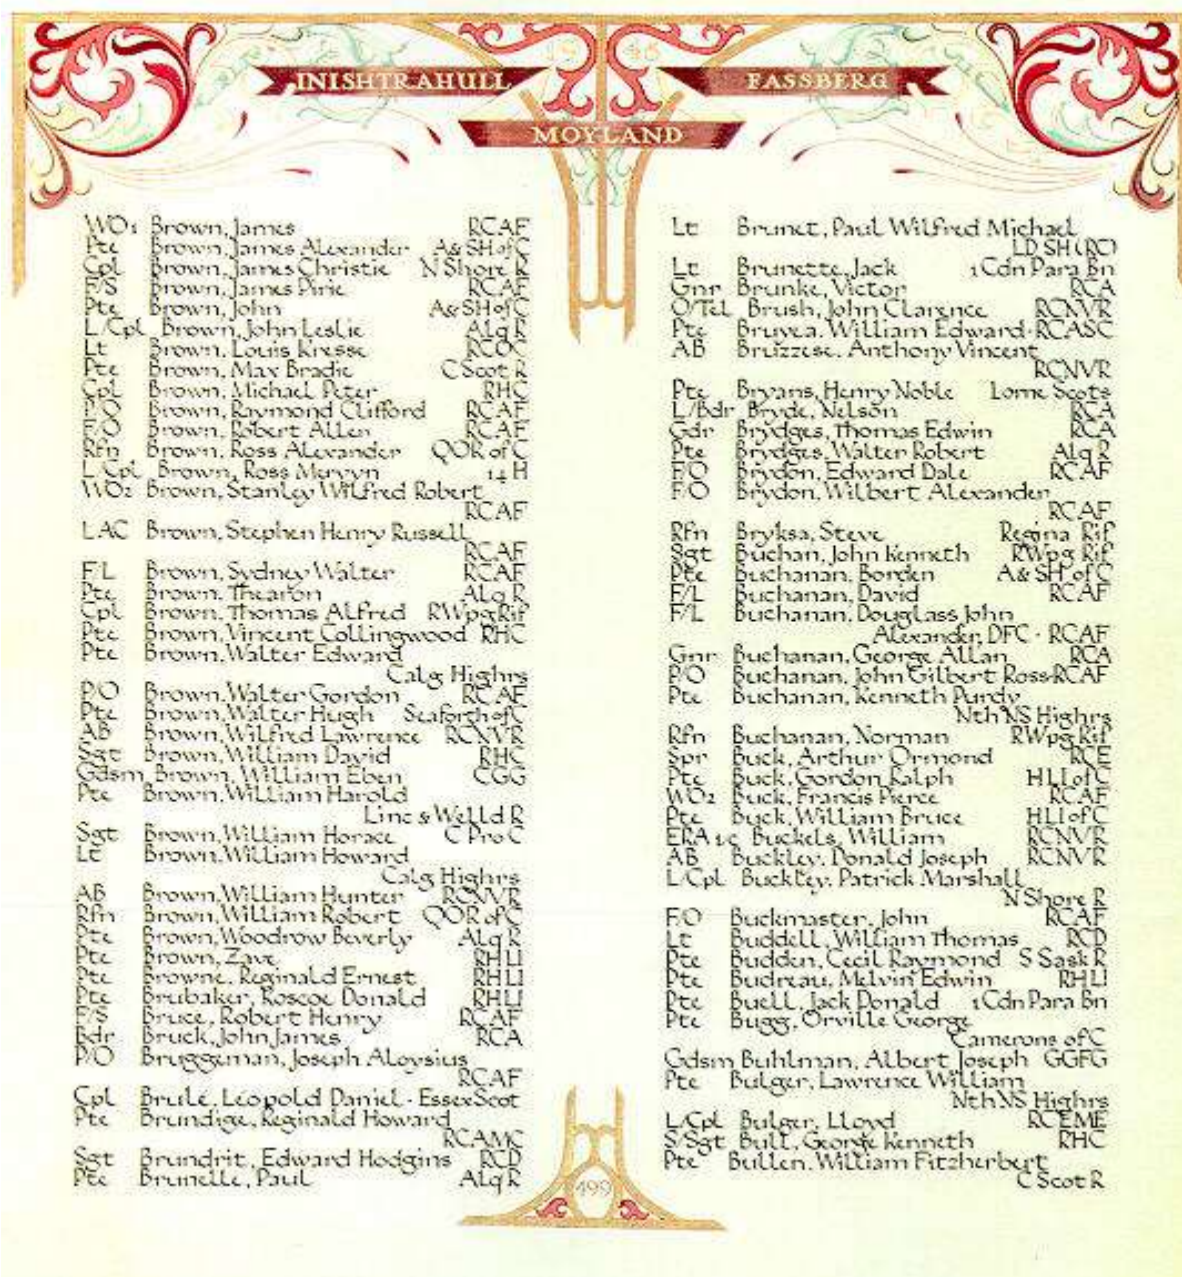 19 45
INISHTRAHULL
FASSBERG
MOYLAND
WO1 Brown, James RCAF
Pte Brown, James Alexander A&SHofC
Cpl Brown, James Christie N Shore R
F/S Brown, James Pirie RCAF
Pte Brown, John A&SHofC
L/Cpl Brown, John Leslie Alq R
Lt Brown, Louis Kresse RCOC
Pte Brown, Max Bradie C Scot R
Cpl Brown, Michael Peter RHC
P/O Brown, Raymond Clifford RCAF
F/O Brown, Robert Allen RCAF
Rfn Brown, Ross Alexander QOR of C
L/Cpl Brown, Ross Mervyn 14 H
WO2 Brown, Stanley Wilfred Robert
RCAF
LAC Brown, Stephen Henry Russell
RCAF
F/L Brown, Sydney Walter RCAF
Pte Brown, Thearon Alq R
Cpl Brown, Thomas Alfred RWpgRif
Pte Brown, Vincent Collingwood RHC
Pte Brown, Walter Edward
Calg Highrs
P/O Brown, Walter Gordon RCAF
Pte Brown, Walter Hugh SeaforthofC
AB Brown, Wilfred Lawrence RCNVR
Sgt Brown, William David RHC
Gdsm Brown, William Eben CGG
Pte Brown, William Harold
Linc & Welld R
Sgt Brown, William Horace C Pro C
Lt Brown, William Howard
Calg Highrs
AB Brown, William Hunter RCNVR
Rfn Brown, William Robert QOR ofC
Pte Brown, Woodrow Beverly Alq R
Pte Brown, Zave RHLI
Pte Browne, Reginald Ernest RHLI
Pte Brubaker, Roscoe Donald RHLI
F/S Bruce, Robert Henry RCAF
Bdr Bruck, John James RCA
P/O Bruggeman, Joseph Aloysius
RCAF
Cpl Brulé, Leopold Daniel · EssexScot
Pte Brundige, Reginald Howard
RCAMC
Sgt Brundrit, Edward Hodgins RCD
Pte Brunelle, Paul Alq R
Lt Brunet, Paul Wilfred Michael
LD SH (RC)
Lt Brunette, Jack 1 Cdn Para Bn
Gnr Brunke, Victor RCA
O/Tel Brush, John Clarence RCNVR
Pte Bruyea, William Edward · RCASC
AB Bruzzese, Anthony Vincent
RCNVR
Pte Bryans, Henry Noble Lorne Scots
L/Bdr Bryde, Nelson RCA
Gdr Brydges, Thomas Edwin RCA
Pte Brydges, Walter Robert Alq R
F/O Brydon, Edward Dale RCAF
F/O Brydon, Wilbert Alexander
RCAF
Rfn Bryksa, Steve Regina Rif
Sgt Buchan, John Kenneth RWpg Rif
Pte Buchanan, Borden A&SH of C
F/L Buchanan, David RCAF
F/L Buchanan, Douglass John
Alexander, DFC · RCAF
Gnr Buchanan, George Allan RCA
P/O Buchanan, John Gilbert Ross·RCAF
Pte Buchanan, Kenneth Purdy
Nth NS Highrs
Rfn Buchanan, Norman RWpg Rif
Spr Buck, Arthur Ormond RCE
Pte Buck, Gordon Ralph HLI of C
WO2 Buck, Francis Pierce RCAF
Pte Buck, William Bruce HLI of C
ERA 4c Buckels, William RCNVR
AB Buckley, Donald Joseph RCNVR
L/Cpl Buckley, Patrick Marshall
N Shore R
F/O Buckmaster, John RCAF
Lt Buddell, William Thomas RCD
Pte Budden, Cecil Raymond S Sask R
Pte Budreau, Melvin Edwin RHLI
Pte Buell, Jack Donald 1 Cdn Para Bn
Pte Bugg, Orville George
Camerons of C
Gdsm Buhlman, Albert Joseph GGFG
Pte Bulger, Lawrence William
Nth NS Highrs
L/Cpl Bulger, Lloyd RCEME
S/Sgt Bull, George Kenneth RHC
Pte Bullen, William Fitzherbert
C Scot R
499